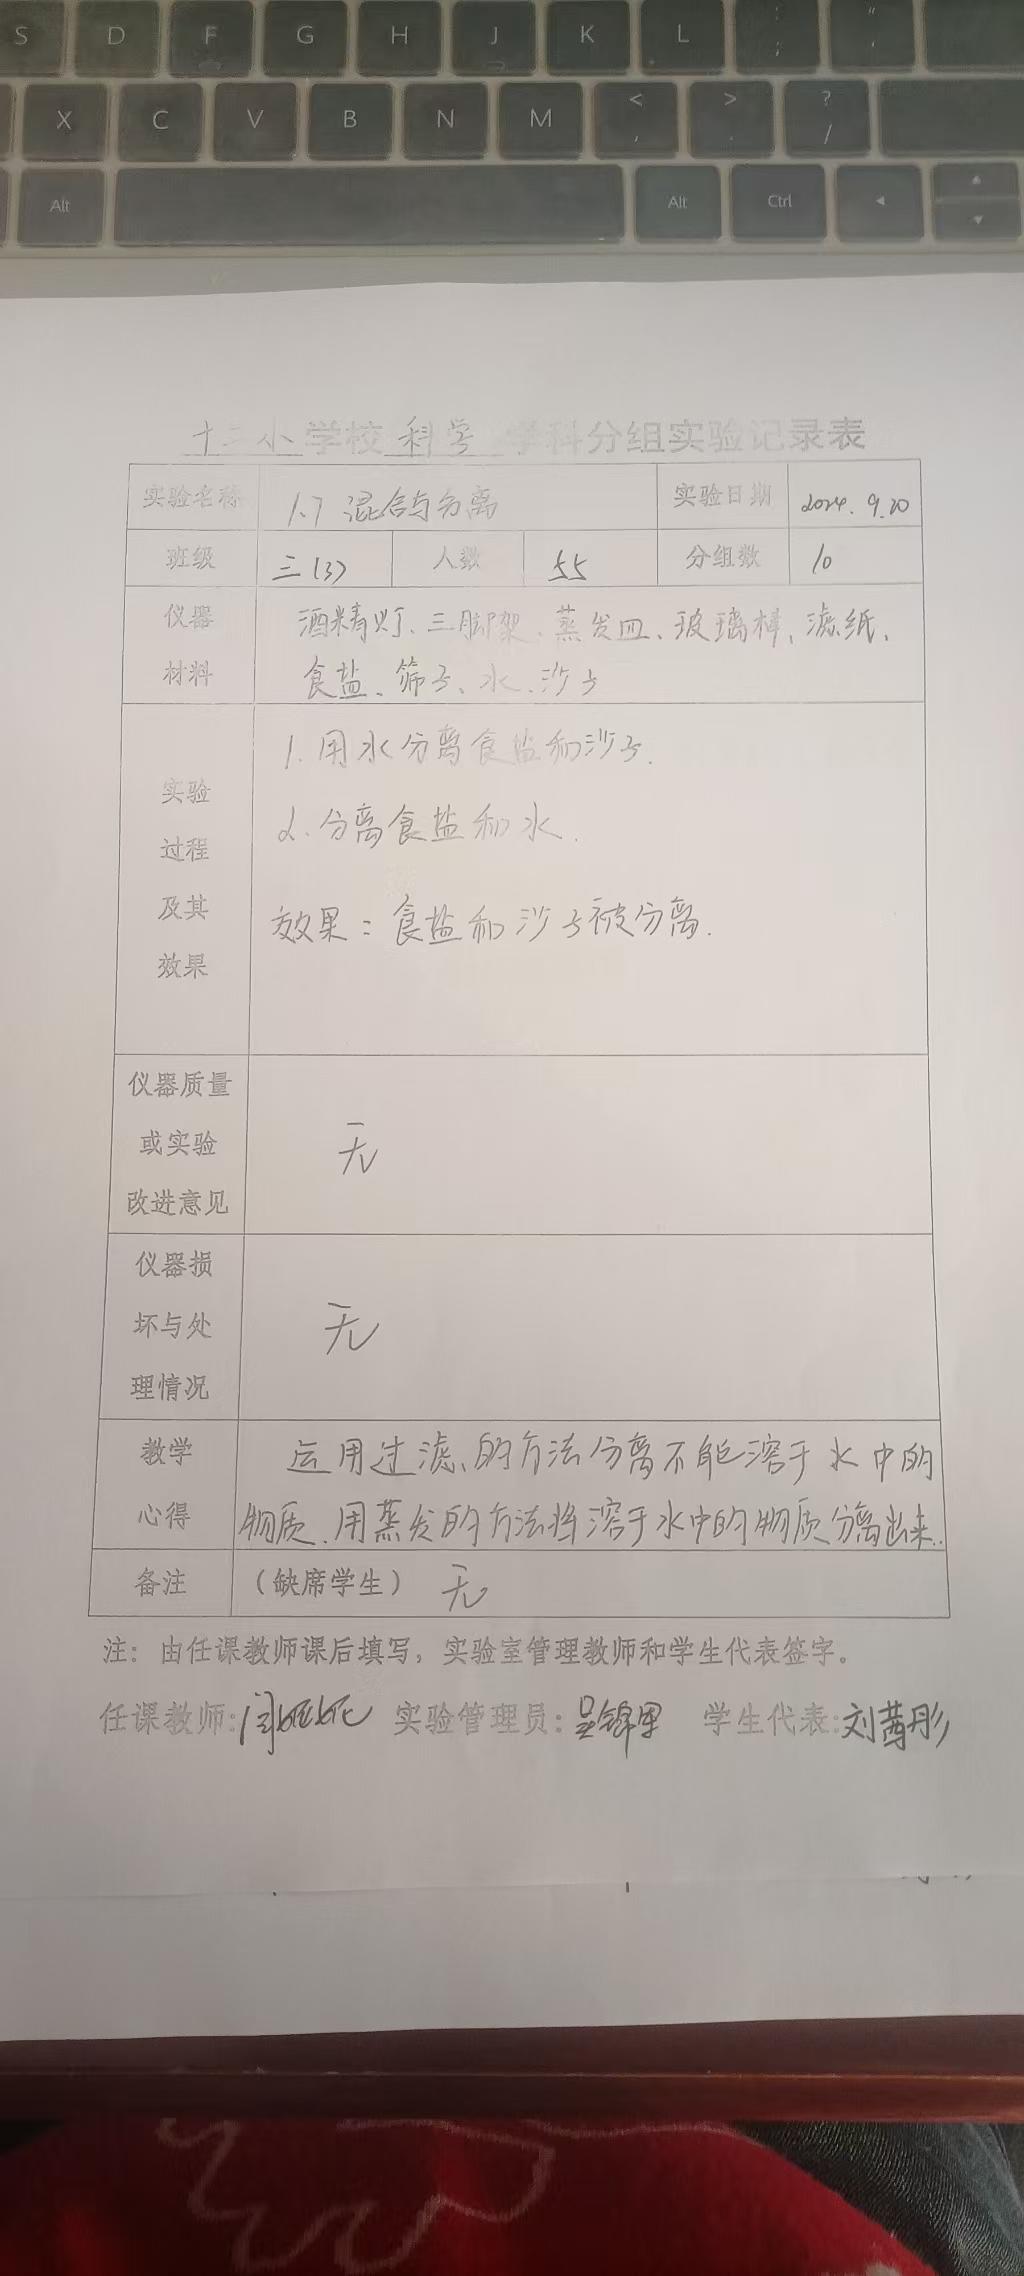 S D F G H J K L : ; " '
X C V B N M < , > . ? /
Alt Alt Ctrl
十二小学校 科学 学科分组实验记录表
实验名称 1.7 混合与分离 实验日期 2024.9.20
班级 三(3) 人数 55 分组数 10
仪器材料 酒精灯、三脚架、蒸发皿、玻璃棒、滤纸、
食盐、筛子、水、沙子
实验过程及其效果
1. 用水分离食盐和沙子.
2. 分离食盐和水.
效果：食盐和沙子被分离.
仪器质量
或实验 无
改进意见
仪器损
坏与处 无
理情况
教学 运用过滤的方法分离不能溶于水中的
心得 物质.用蒸发的方法将溶于水中的物质分离出来..
备注 （缺席学生） 无
注：由任课教师课后填写，实验室管理教师和学生代表签字。
任课教师: 实验管理员: 学生代表:刘茜彤